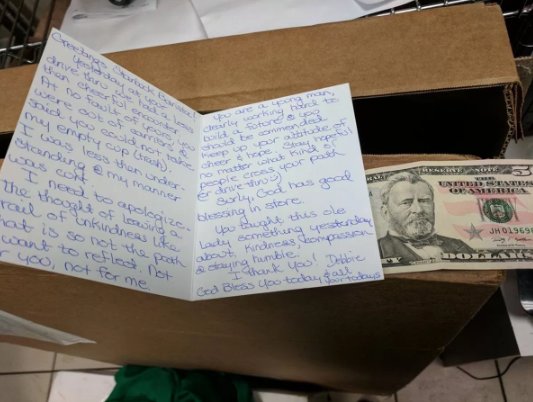 Greetings Starbuck Barista!
Yesterday at your
drive thru I had a less
than cheerful encounter.
At no fault of yours, you
were out of carriers &
said you could not take
my empty cup (trash).
I was less then under-
standing & my manner
was curt.
I need to apologize.
the thought of leaving a
trail of unkindness like
that is so not the path
want to reflect. Not
r you, not for me.
You are a young man,
clearly working hard to
build a future & you
should be commended.
Keep up your attitude of
cheer & hope. Stay hopeful
no matter what kind of
people cross your path
(& drive thru)!
Surly, God has good
blessing in store.
You taught this ole
lady something yesterday
about, kindness, compassion
& staying humble.
I thank you! Debbie
God Bless you today & all your todays
RESERVE NOTE
THE
UNITED STATES
JH 01969
DOLLARS